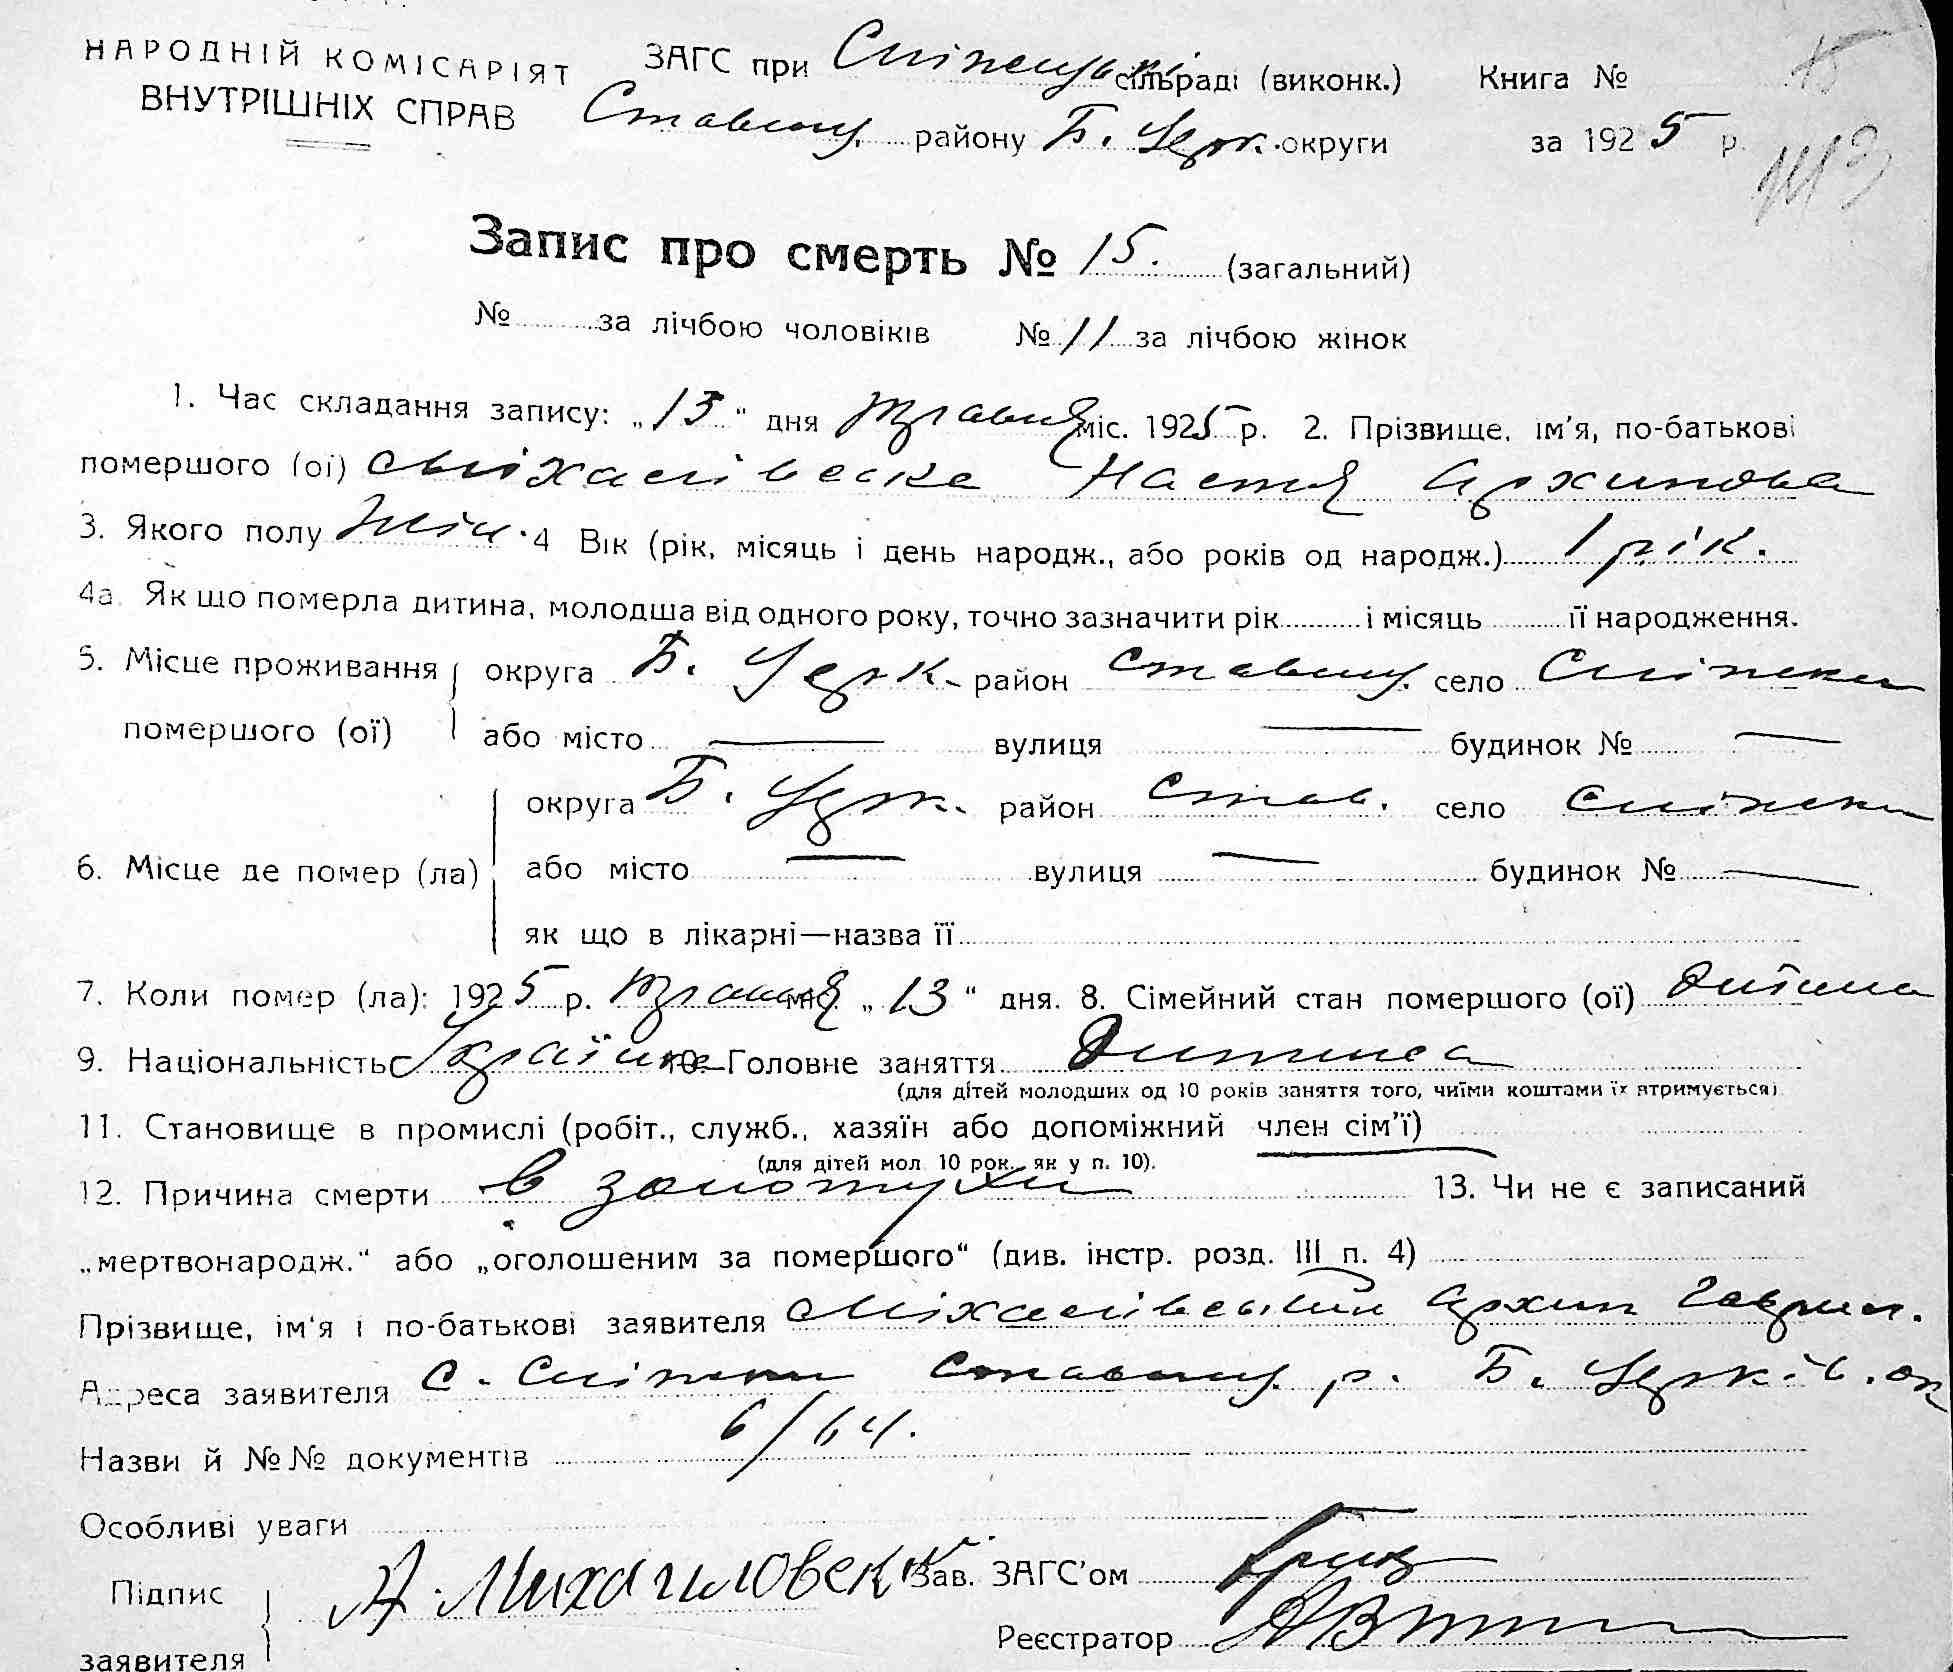 НАРОДНІЙ КОМІСАРІЯТ ВНУТРІШНІХ СПРАВ
ЗАГС при Сніжецькій сільраді (виконк.) Книга №
Ставищ. району Б. Церк. округи за 1925 р.
Запис про смерть № 15. (загальний)
№ за лічбою чоловіків № 11 за лічбою жінок
1. Час складання запису: „13" дня травня міс. 1925 р. 2. Прізвище, ім'я, по-батькові
помершого (ої) Міхалівська Настя Архипова
3. Якого полу Жін. 4 Вік (рік, місяць і день народж., або років од народж.) 1 рік.
4а. Як що померла дитина, молодша від одного року, точно зазначити рік і місяць її народження.
5. Місце проживання помершого (ої) округа Б. Церк. район Ставищ. село Сніжки
або місто — вулиця — будинок № —
6. Місце де помер (ла) округа Б. Церк. район Став. село Сніжки
або місто — вулиця — будинок № —
як що в лікарні—назва її
7. Коли помер (ла): 1925 р. травня міс. „13" дня. 8. Сімейний стан помершого (ої) дитина
9. Національність Українка 10. Головне заняття Дитина
(для дітей молодших од 10 років заняття того, чиїми коштами їх втримується)
11. Становище в промислі (робіт., служб., хазяїн або допоміжний член сім'ї)
(для дітей мол. 10 рок. як у п. 10).
12. Причина смерти в золотухи 13. Чи не є записаний
„мертвонародж." або „оголошеним за помершого" (див. інстр. розд. III п. 4)
Прізвище, ім'я і по-батькові заявителя Міхалівський Архип Гаврил.
Адреса заявителя с. Сніжки Ставищ. р. Б. Церків. ок
Назви й №№ документів 6/64.
Особливі уваги
Підпис заявителя А. Михаиловск Зав. ЗАГС'ом
Реєстратор